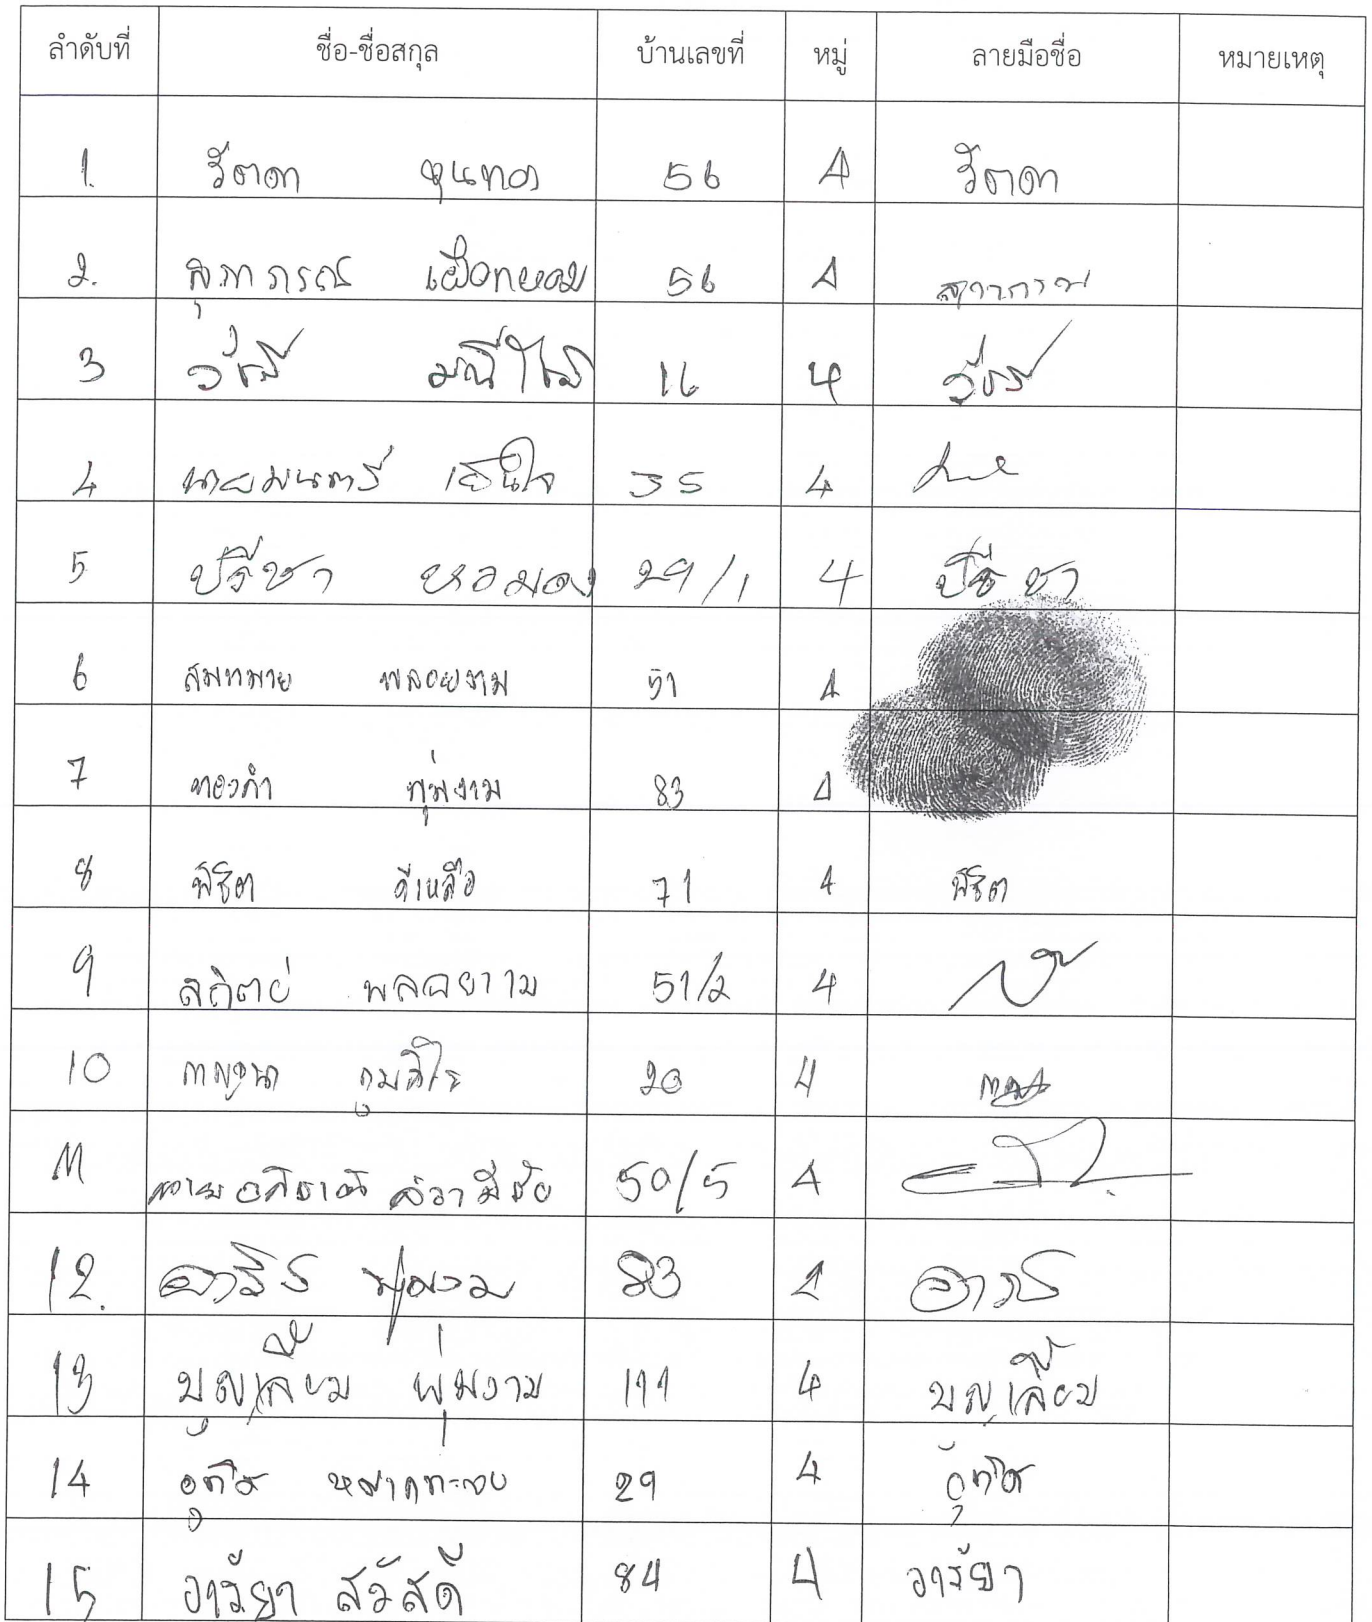 ลำดับที่ ชื่อ-ชื่อสกุล บ้านเลขที่ หมู่ ลายมือชื่อ หมายเหตุ
1. รัตดา ขุนทอง 56 4 รัตดา
2. สุภาภรณ์ เผือกหอม 56 4 สุภาภรณ์
3 วัชรี มณีไสย 16 4 วัชรี
4 นายมนตรี เย็นใจ 35 4
5 ปรีชา หอมดง 29/1 4 ปรีชา
6 สมหมาย พลอยงาม 51 4
7 ทองคำ พุ่มงาม 83 4
8 พิชิต ดีเหลือ 71 4 พิชิต
9 สถิตย์ พลอยงาม 51/2 4
10 กาญจนา 20 4
11 50/5 4
12. อารีย์ พุ่มงาม 83 4 อารีย์
13 บุญเลี้ยม พุ่มงาม 111 4 บุญเลี้ยม
14 อุทิศ 29 4 อุทิศ
15 อารียา สวัสดี 84 4 อารียา